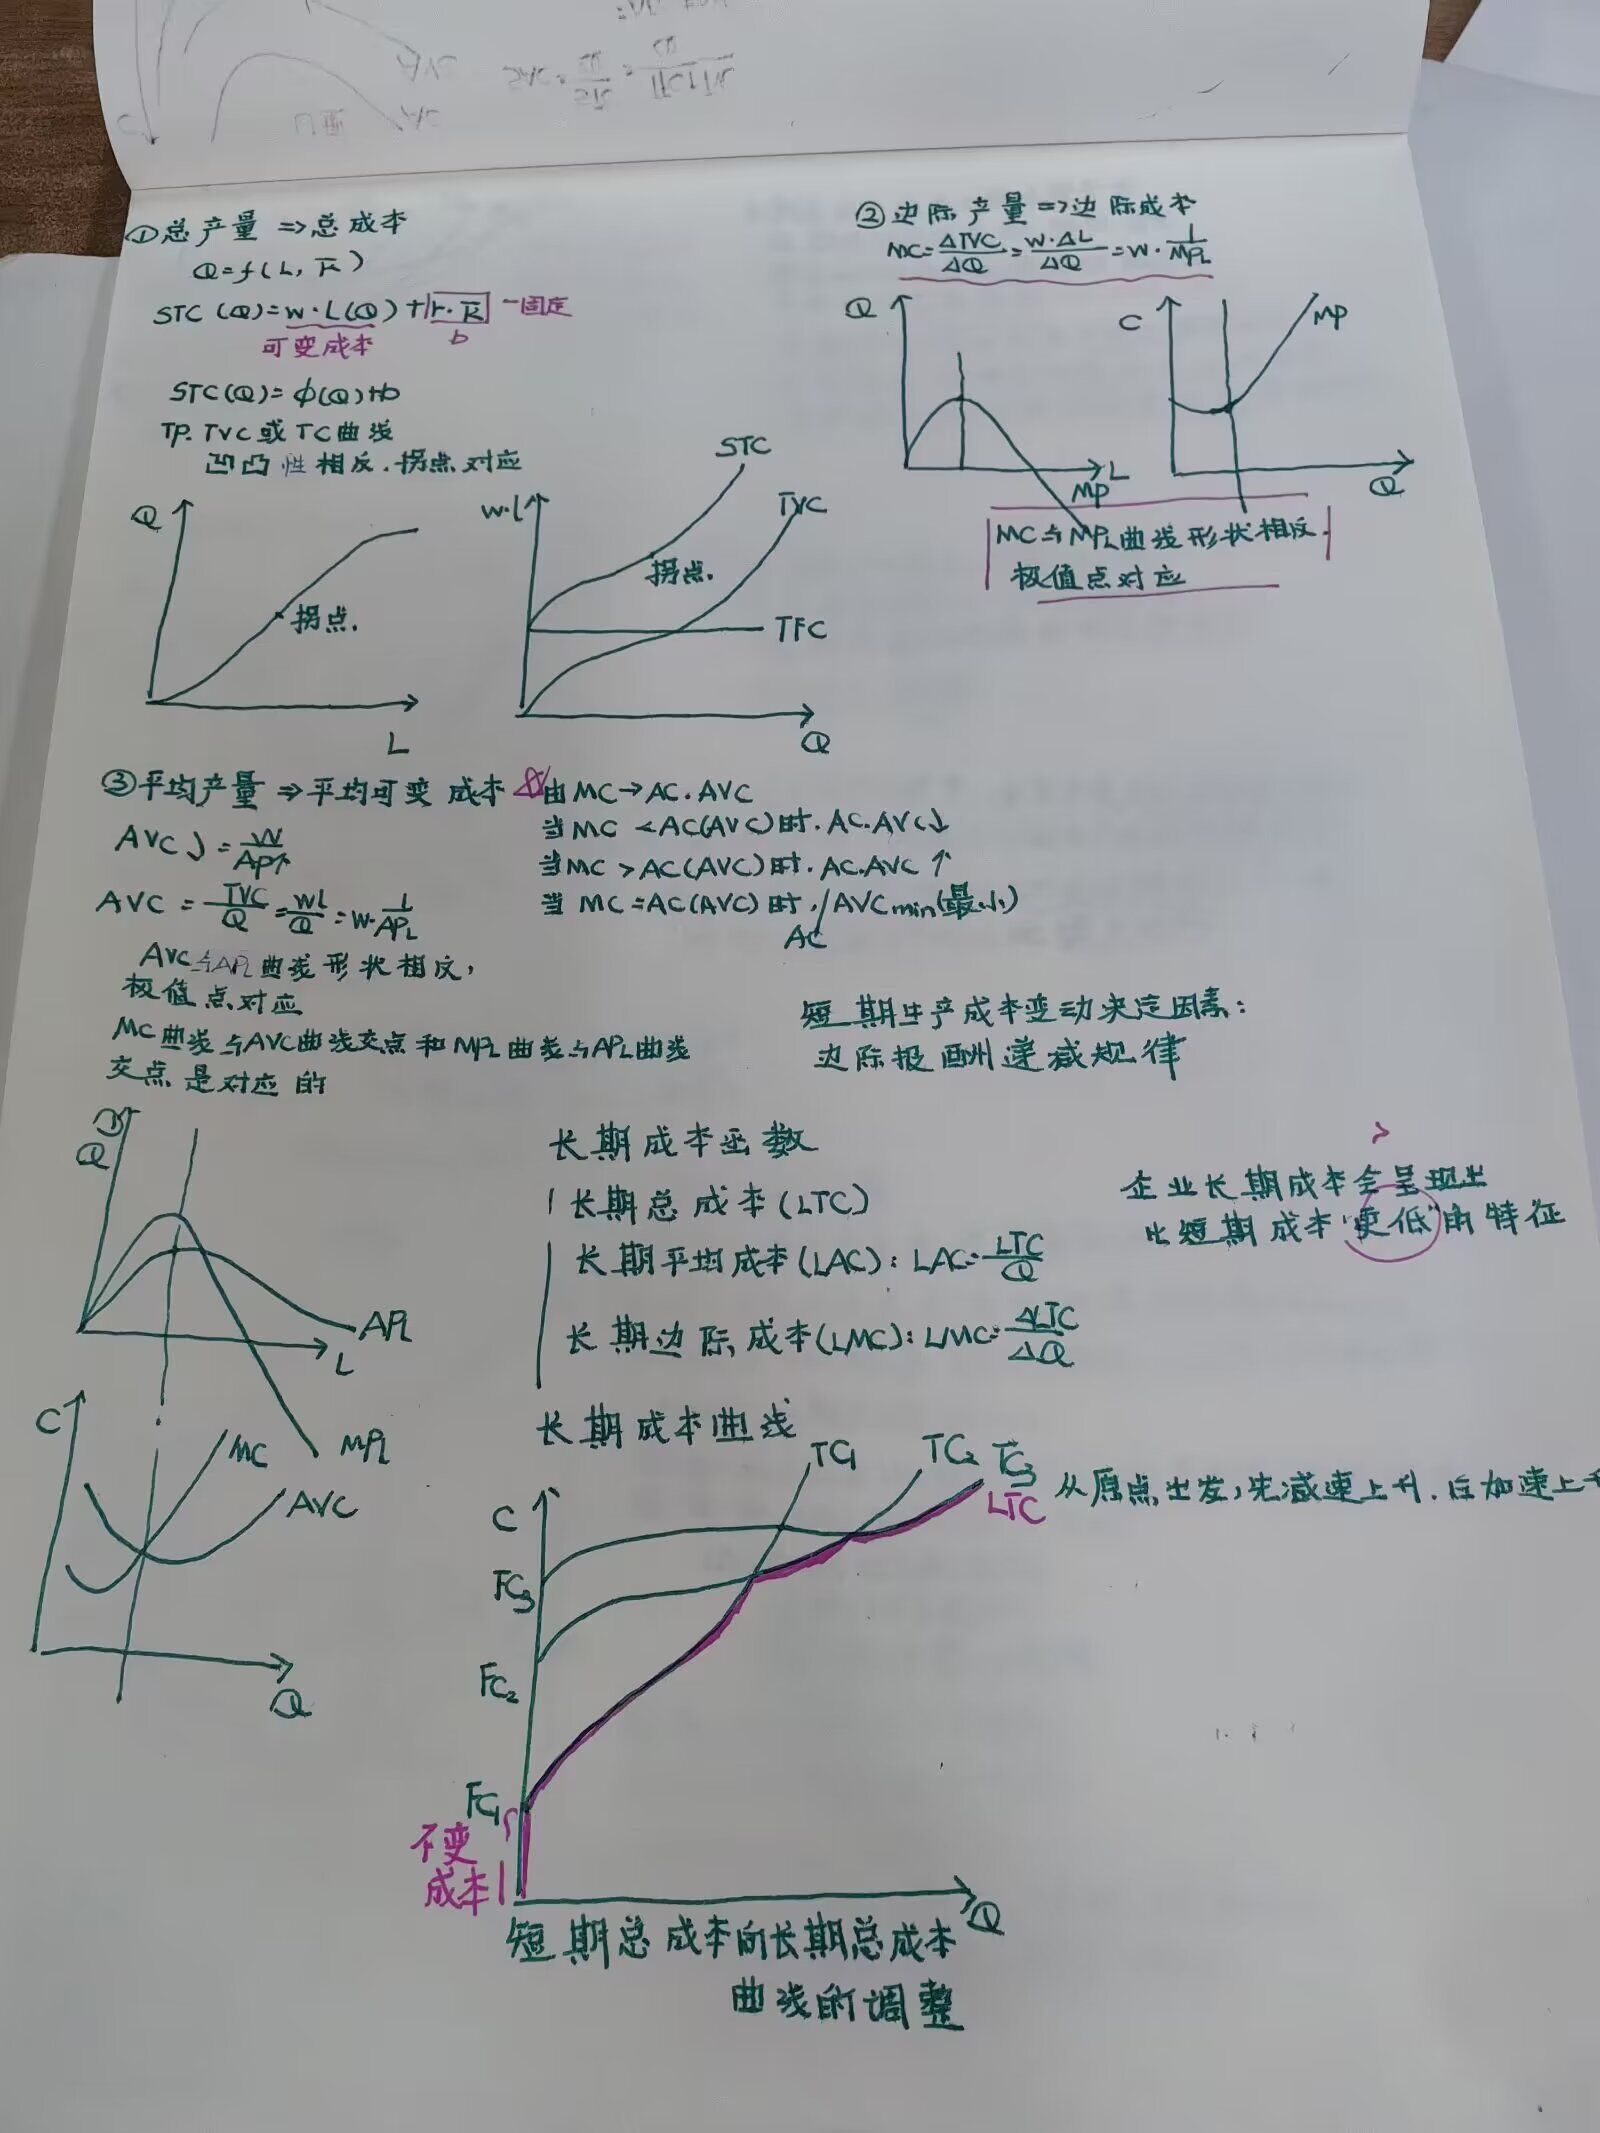 ①总产量⇒总成本
Q=f(L, K̅)
STC(Q)=w·L(Q)+r·K̅ -固定
可变成本 b
STC(Q)=ϕ(Q)+b
TP. TVC或TC曲线
凹凸性相反.拐点对应
Q
拐点.
L
w·L
STC
TVC
拐点.
TFC
Q
②边际产量⇒边际成本
MC=ΔTVC/ΔQ=w·ΔL/ΔQ=w·1/MPL
Q
L
MP
C
MP
Q
MC与MPL曲线形状相反.
极值点对应
③平均产量⇒平均可变成本
AVC↓=w/AP↑
AVC=TVC/Q=wL/Q=w·1/APL
AVC与APL曲线形状相反,
极值点对应
MC曲线与AVC曲线交点和MPL曲线与APL曲线
交点是对应的
由MC→AC.AVC
当MC<AC(AVC)时.AC.AVC↓
当MC>AC(AVC)时.AC.AVC↑
当MC=AC(AVC)时./AVCmin(最小)
AC
短期生产成本变动决定因素:
边际报酬递减规律
Q
APL
L
MPL
C
MC
AVC
Q
长期成本函数
长期总成本(LTC)
长期平均成本(LAC):LAC=LTC/Q
长期边际成本(LMC):LMC=ΔLTC/ΔQ
企业长期成本会呈现出
比短期成本“更低”的特征
长期成本曲线
TC1
TC2
TC3
LTC
从原点出发,先减速上升.后加速上升
C
FC3
FC2
FC1
不变
成本
Q
短期总成本向长期总成本
曲线的调整